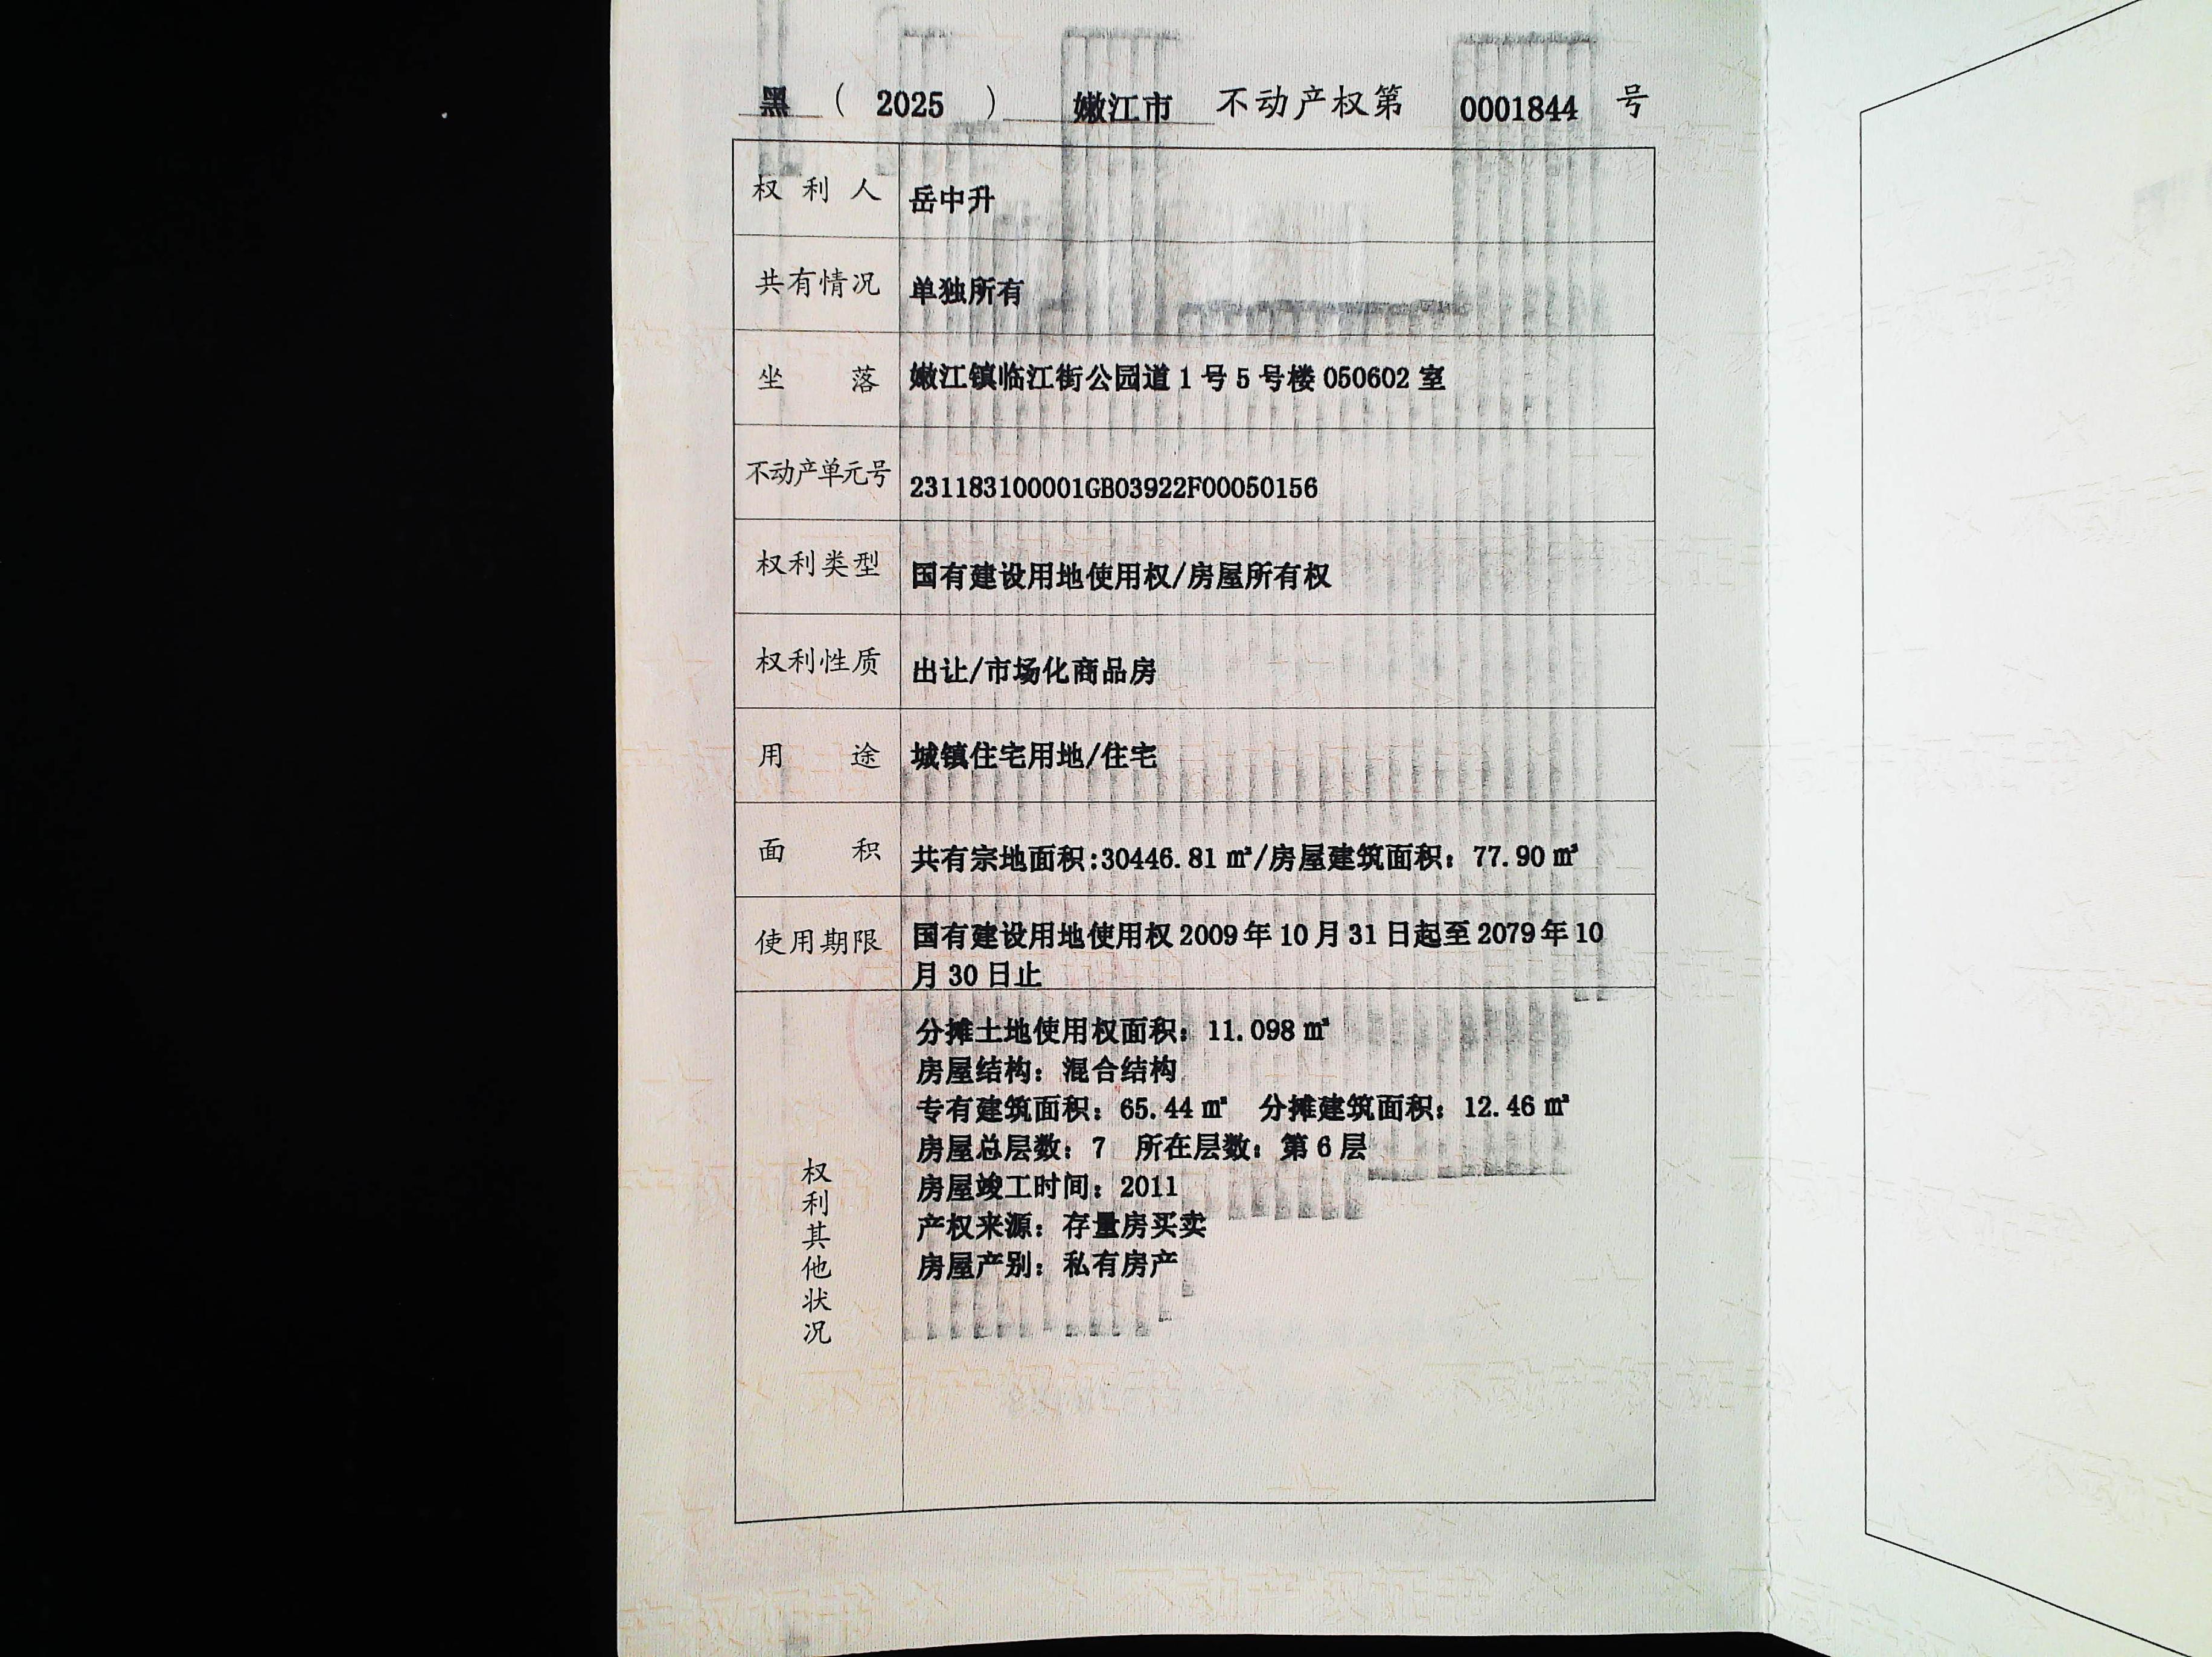 黑 ( 2025 ) 嫩江市 不动产权第 0001844 号
权利人 岳中升
共有情况 单独所有
坐落 嫩江镇临江街公园道1号5号楼050602室
不动产单元号 231183100001GB03922F00050156
权利类型 国有建设用地使用权/房屋所有权
权利性质 出让/市场化商品房
用途 城镇住宅用地/住宅
面积 共有宗地面积:30446.81㎡/房屋建筑面积：77.90㎡
使用期限 国有建设用地使用权2009年10月31日起至2079年10
月30日止
权利其他状况
分摊土地使用权面积：11.098㎡
房屋结构：混合结构
专有建筑面积：65.44㎡ 分摊建筑面积：12.46㎡
房屋总层数：7 所在层数：第6层
房屋竣工时间：2011
产权来源：存量房买卖
房屋产别：私有房产